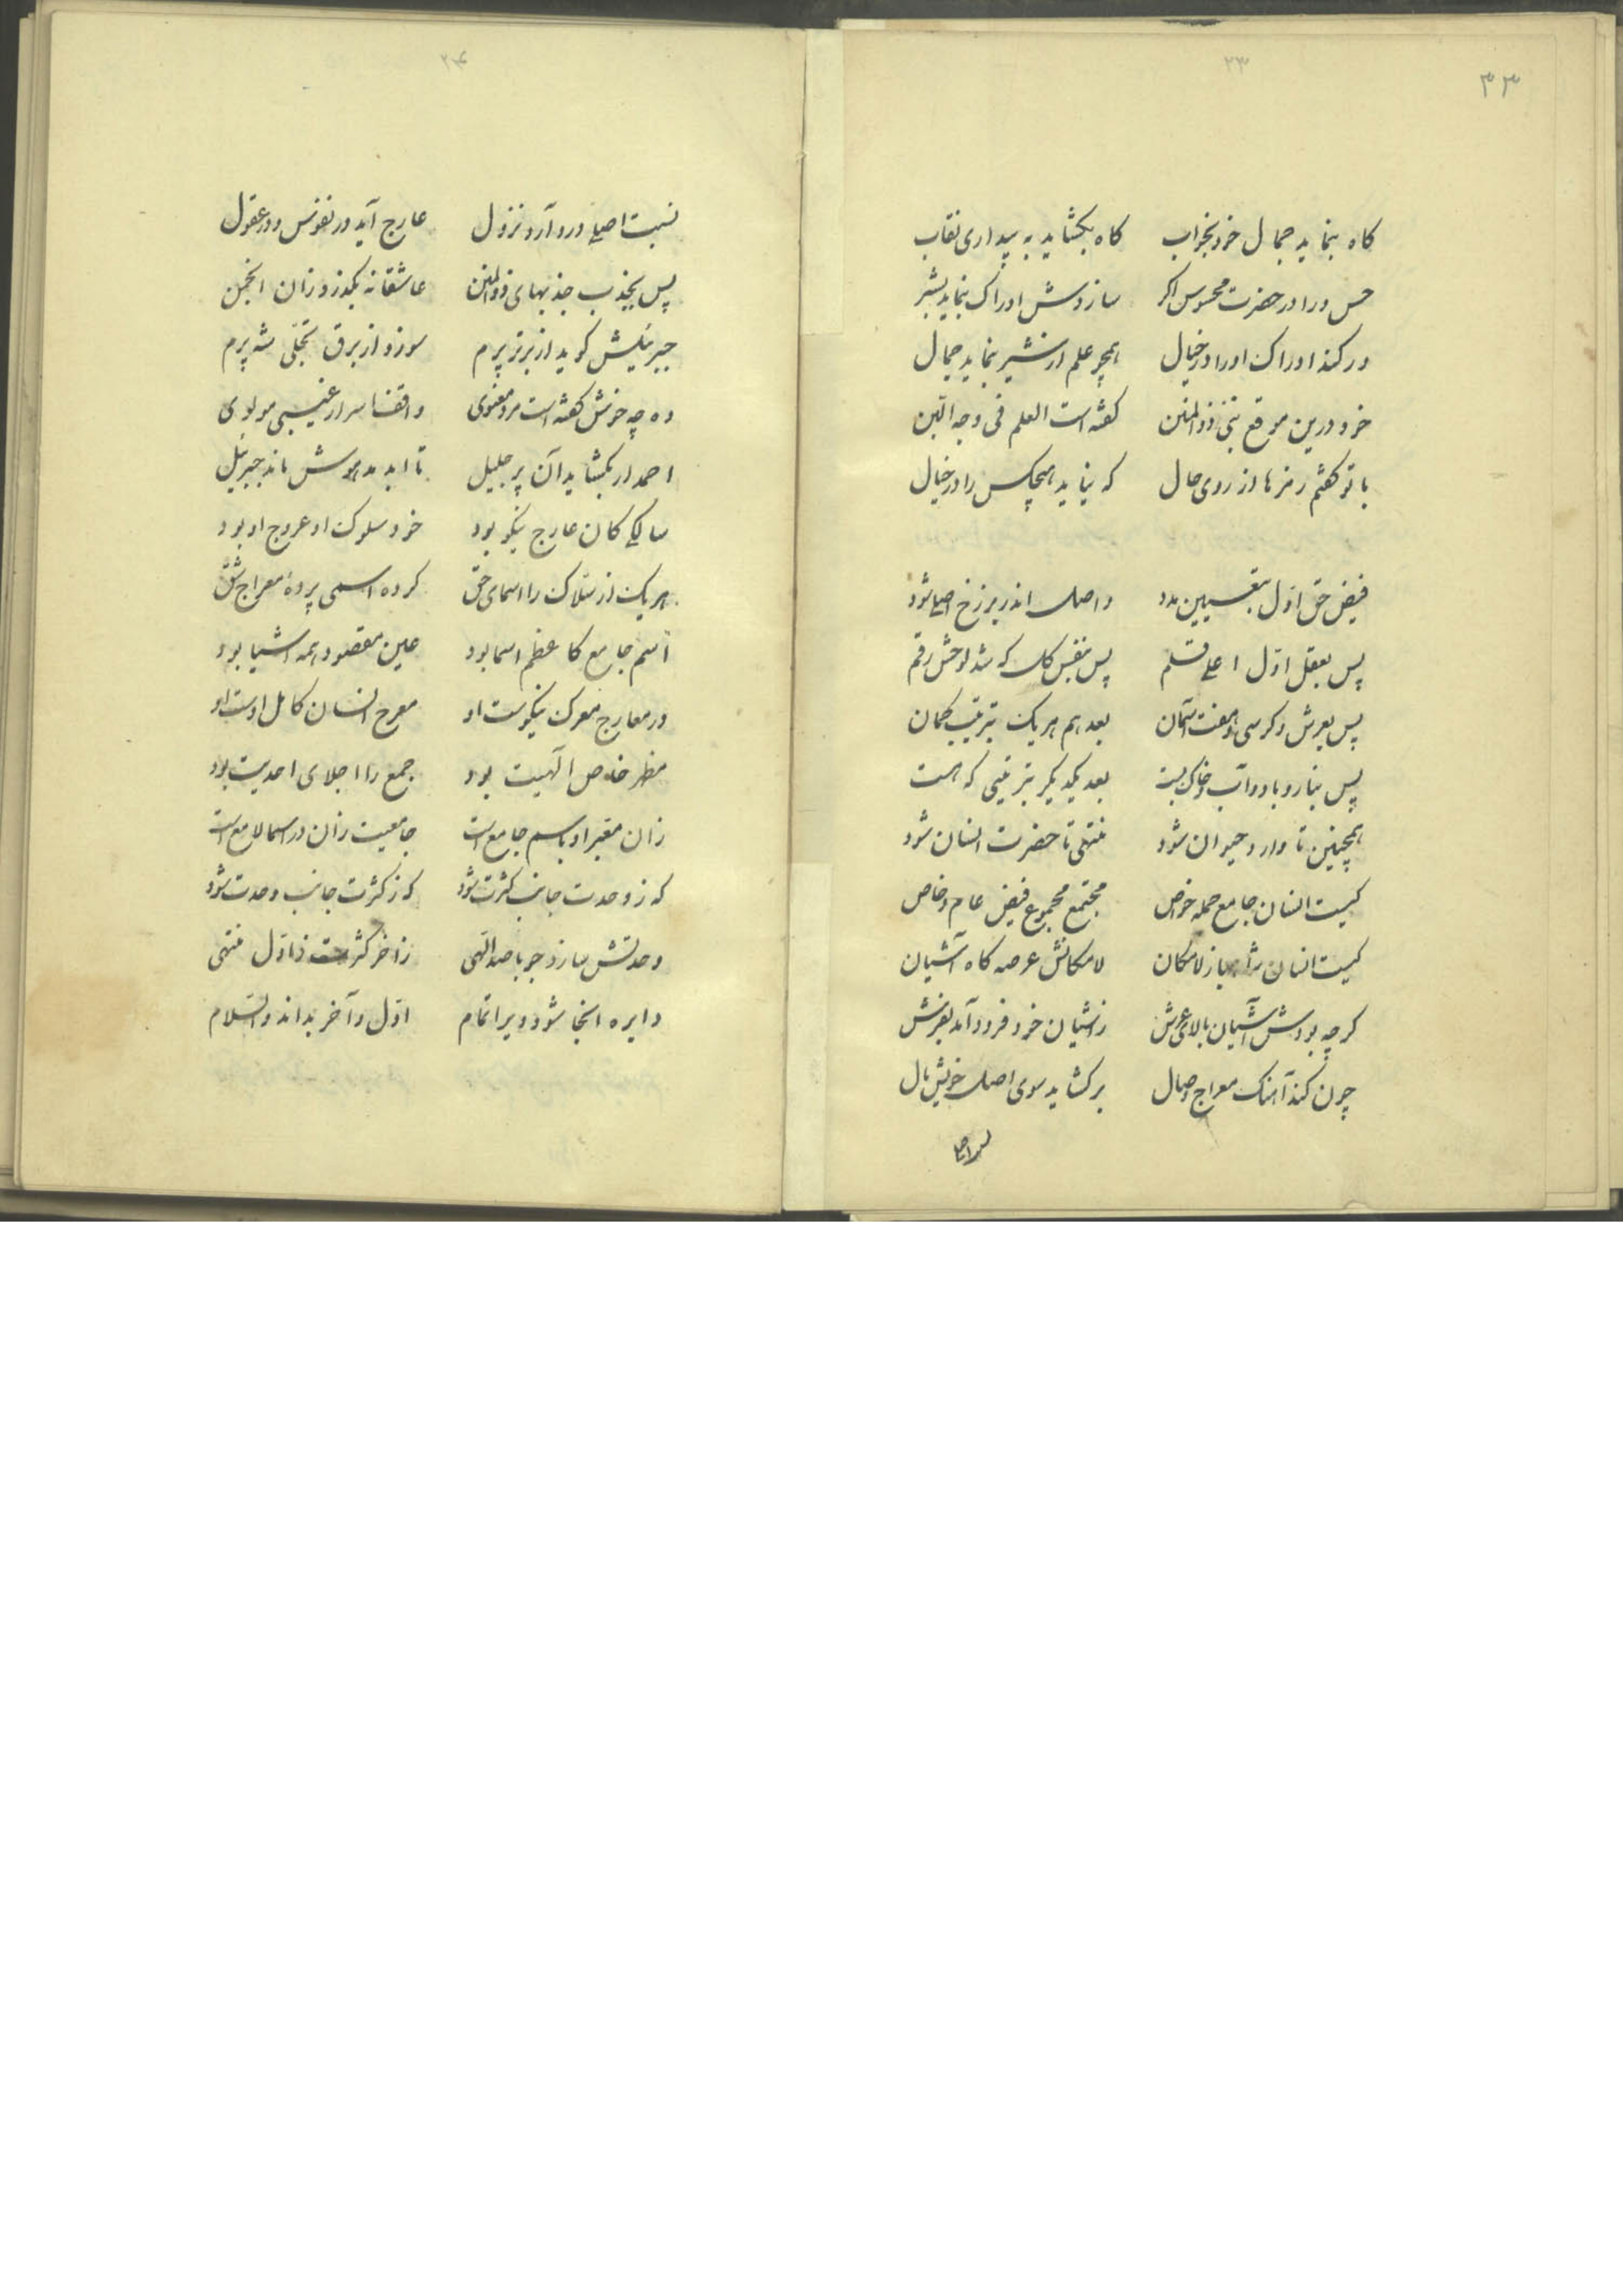 ۳۳
۲۳
کاه بنماید جمال خود بخواب کاه بکشاید به بیداری نقاب
حس ورا در حضرت محسوس اکر سازدش ادراک بنماید بشر
ور کند ادراک اورا در خیال همچو علم از شیر بنماید جمال
خود درین موقع نبی ذوالمنن کفته است العلم فی وجه اللبن
با تو کفتم رمزها از روی حال که نیاید هیچکس را در خیال
فیض حق اول بتعیین مدد واصل اندر برزخ اصلی شود
پس بعقل اول اعلی قلم پس بنفس کل که شد لوحش رقم
پس بعرش و کرسی و هفت آسمان بعد هم هر یک بترتیب کمان
پس بنار و باد و آب و خاک پست بعد یکدیکر بترتیبی که هست
همچنین تا وارد حیوان شود منتهی تا حضرت انسان شود
کیست انسان جامع جمله خواص مجتمع مجموع فیض عام و خاص
کیست انسان شاهباز لامکان لامکانش عرصه کاه آشیان
کرچه بودش آشیان بالای عرش زاشیان خود فرود آمد بفرش
چون کند آهنک معراج وصال برکشاید سوی اصل خویش بال
۲۴
نسبت اصلی درو آرد نزول عارج آید در نفوس و در عقول
پس بجذب جذبهای ذوالمنن عاشقانه بکذرد زان انجمن
جبرئیلش کوید ار برتر پرم سوزد از برق تجلی شه پرم
وه چه خوش کفته است مرد معنوی واقف اسرار غیبی مولوی
احمد ار بکشاید آن پر جلیل تا ابد مدهوش ماند جبرئیل
سالکی کان عارج نیکو بود خود سلوک او عروج او بود
هر یک از سلاک را اسمای حق کرده اسمی پردهٔ معراج شق
اسم جامع کاعظم اسما بود عین مقصود همه اشیا بود
در معارج معرک نیکوست او معرج انسان کامل اوست او
مظهر خاص الهیت بود جمع را اجلای احدیت بود
زان معبر او باسم جامع است جامعیت زان در اسما لامع است
که ز وحدت جانب کثرت شود که ز کثرت جانب وحدت شود
وحدتش سازد چو با صد آلهی زاخر کثرت ز اول منتهی
دایره اینجا شود ویرا تمام اول و آخر بداند والسلام